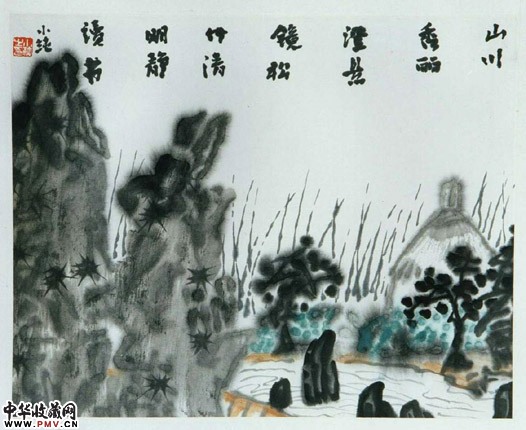 山川
秀丽
澄
镜松
竹清
明静
读书
中华收藏网
WWW.PMV.CN